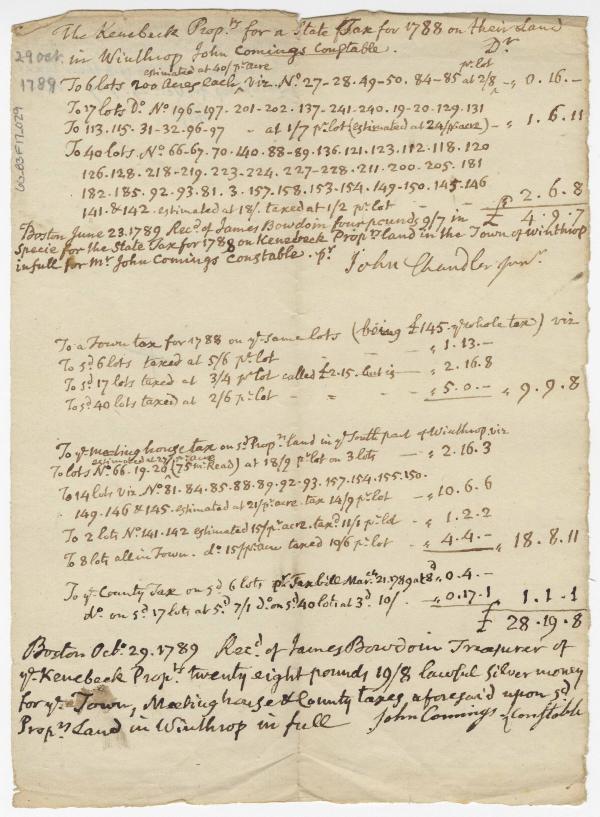 The Kenebeck Prop.rs for a State Tax for 1788 on their Land
in Winthrop John Comings Constable. Dr
29 Oct.
1789
66.83F17.029
estimated at 40/ pr acre
pr lot
To 6 lots 200 Acres each Viz No 27-28-49-50. 84-85 at 2/8 - " 0.16.-
To 17 lots Do No 196-197. 201-202. 137-241. 240. 19-20. 129. 131
To 113. 115. 31-32. 96-97 - at 1/7 pr lot (estimated at 24/ pr acre) - " 1.6.11
To 40 lots No 66-67. 70. 140. 88-89. 136. 121. 123. 112. 118. 120
126. 128. 218-219. 223-224. 227-228. 211. 200. 205. 181
182. 185. 92. 93. 81. 3. 157. 158. 153-154. 149-150. 145. 146
141 & 142. estimated at 18/. taxed at 1/2 pr lot - - 2.6.8
£ 4.9.7
Boston June 23. 1789 Recd of James Bowdoin four pounds 9/7 in
specie for the State Tax for 1788 on Kenebeck Prop.rs land in the Town of Winthrop
in full for Mr John Comings Constable. pr
John Chandler Junr
To a Town tax for 1788 on ye same lots (being £145. ye whole tax) viz
To sd 6 lots taxed at 5/6 pr lot - " 1.13.-
To sd 17 lots taxed at 3/4 pr lot called £2.15. but is - " 2.16.8
To sd 40 lots taxed at 2/6 pr lot - " 5.0.- " 9.9.8
To ye meeting house tax on sd Prop.rs land in ye South part of Winthrop viz
estimated at 27/ pr acre
To lots No 66. 19. 20 (75 in Read) at 18/9 pr lot on 3 lots - " 2.16.3
To 14 lots Viz No 81. 84. 85. 88. 89. 92. 93. 157. 154. 155. 150.
149. 146 & 145. estimated at 21/ pr acre. tax 14/9 pr lot - " 10.6.6
To 2 lots No 141. 142 estimated 15/ pr acre. taxd 11/1 pr lot - " 1.2.2
To 8 lots all in Town. do 15/ pr acre taxed 10/6 pr lot - " 4.4.- " 18.8.11
To ye County Tax on sd 6 lots pr Tax bill Mar. 21. 1789 at 8d " 0.4.-
do on sd 17 lots at 5d 7/1 Do on sd 40 lots at 3d. 10/ " 0.17.1 1.1.1
£ 28.19.8
Boston Octo 29. 1789 Recd of James Bowdoin Treasurer of
ye Kenebeck Prop.rs twenty eight pounds 19/8 lawful silver money
for ye Town, Meeting house & County taxes, aforesaid upon sd
Prop.rs Land in Winthrop in full John Comings Constable